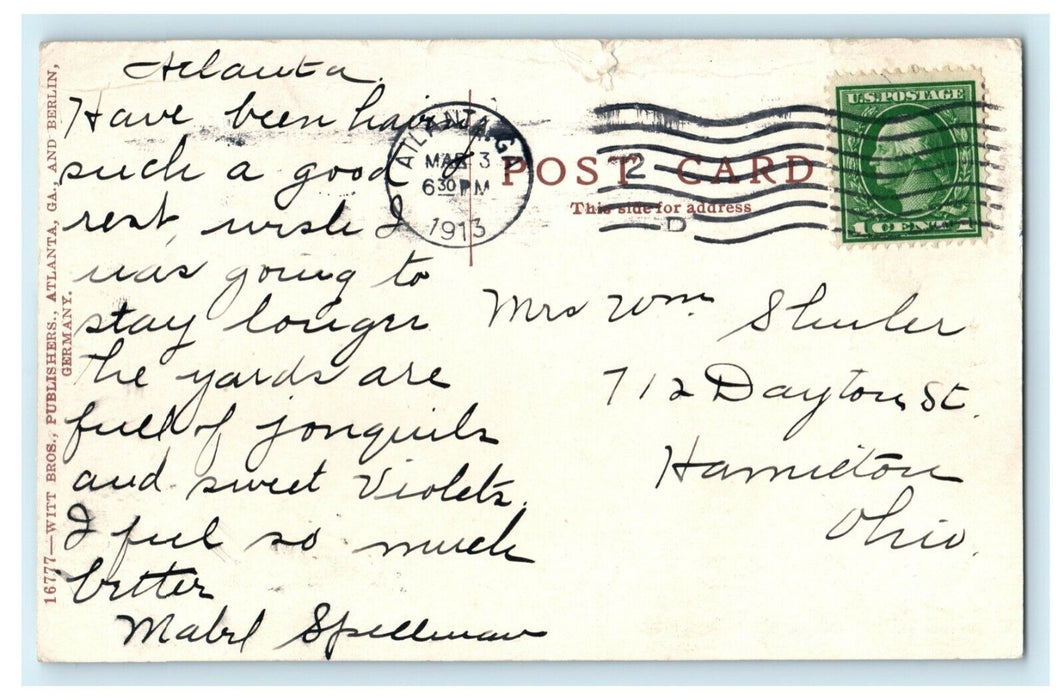 Atlanta.
Have been having
such a good
rest, wish I
was going to
stay longer
The yards are
full of jonquils
and sweet Violets.
I feel so much
better
Mabel Spellman
16777—WITT BROS., PUBLISHERS., ATLANTA, GA., AND BERLIN,
GERMANY.
ATLANTA, GA.
MAR 3
6 30 PM
1913
2
D
POST CARD
This side for address
U.S. POSTAGE
1 CENT 1
Mrs Wm. Shuler
712 Dayton St.
Hamilton
Ohio.